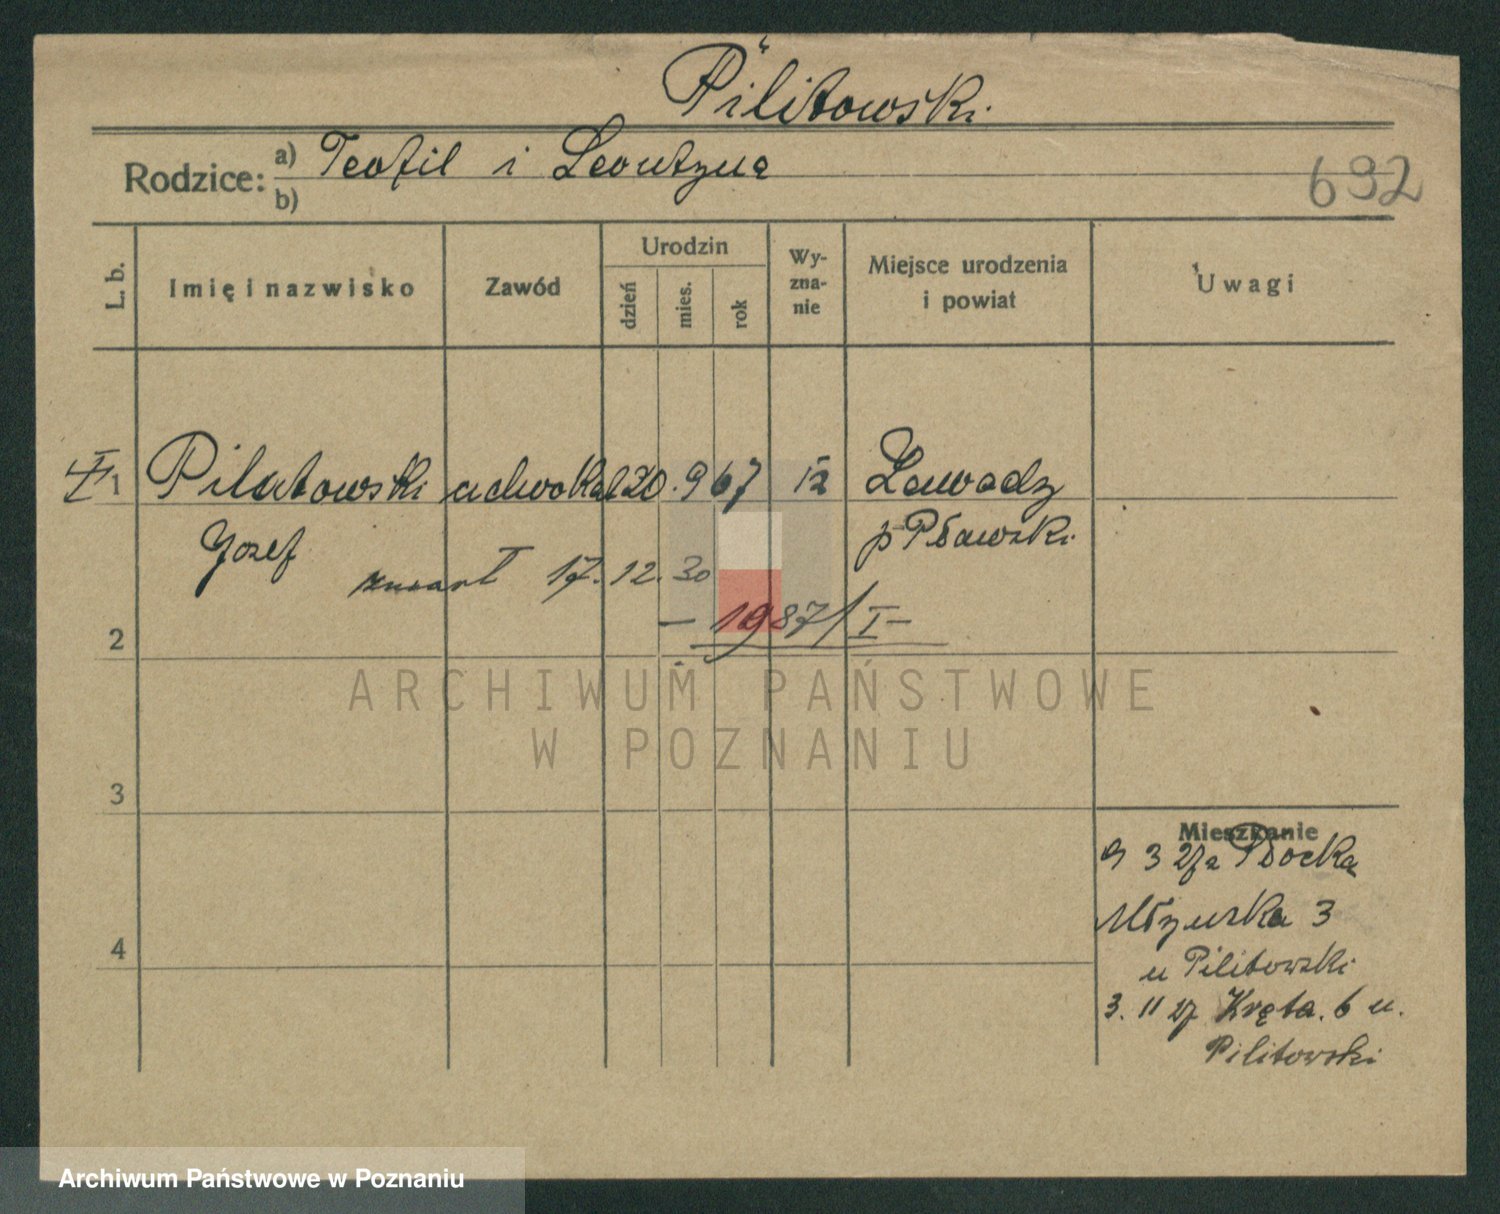 Pilitowski
Rodzice: a) Teofil i Leontyna
b)
692
L. b.
Imię i nazwisko
Zawód
Urodzin
dzień
mies.
rok
Wy-
zna-
nie
Miejsce urodzenia
i powiat
Uwagi
1 Pilatowski adwokat 20. 9 67 Zawady
Józef p Pławski
zmarł 17. 12. 30
2 — 1987/I —
ARCHIWUM PAŃSTWOWE
W POZNANIU
3
Mieszkanie
9 3 27 z Płocka
Młyńska 3
4
u Pilitowski
3. 11 27 Kręta. 6 u.
Pilitowski
Archiwum Państwowe w Poznaniu